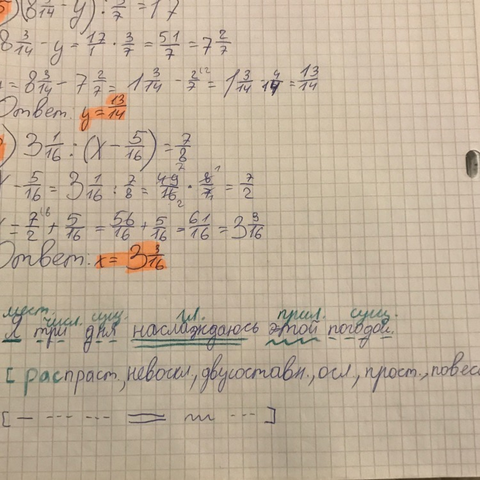 ) (8 3/14 - y) : 2/7 = 17
8 3/14 - y = 17/1 · 3/7 = 51/7 = 7 2/7
= 8 3/14 - 7 2/7 = 1 3/14 - 2/7 = 1 3/14 - 4/14 = 13/14
Ответ: y = 13/14
) 3 1/16 : (x - 5/16) = 7/8
x - 5/16 = 3 1/16 : 7/8 = 49/16 · 8/7 = 7/2
= 7/2 + 5/16 = 56/16 + 5/16 = 61/16 = 3 9/16
Ответ: x = 3 3/16
мест. числ. сущ. гл. прил. сущ.
Я три дня наслаждаюсь этой погодой.
[распраст., невоскл., двусоставн., осл., прост., повес